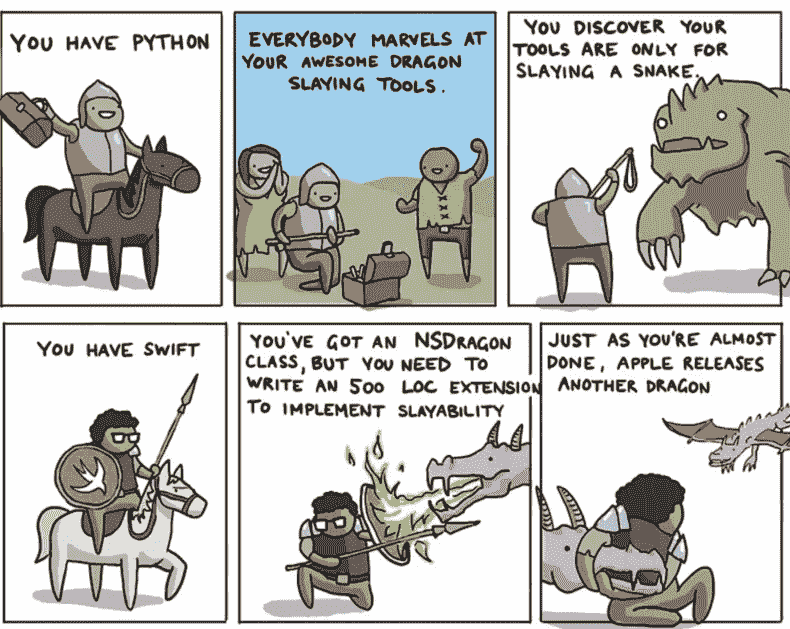 YOU HAVE PYTHON
EVERYBODY MARVELS AT
YOUR AWESOME DRAGON
SLAYING TOOLS.
YOU DISCOVER YOUR
TOOLS ARE ONLY FOR
SLAYING A SNAKE.
YOU HAVE SWIFT
YOU'VE GOT AN NSDRAGON
CLASS, BUT YOU NEED TO
WRITE AN 500 LOC EXTENSION
TO IMPLEMENT SLAYABILITY
JUST AS YOU'RE ALMOST
DONE, APPLE RELEASES
ANOTHER DRAGON